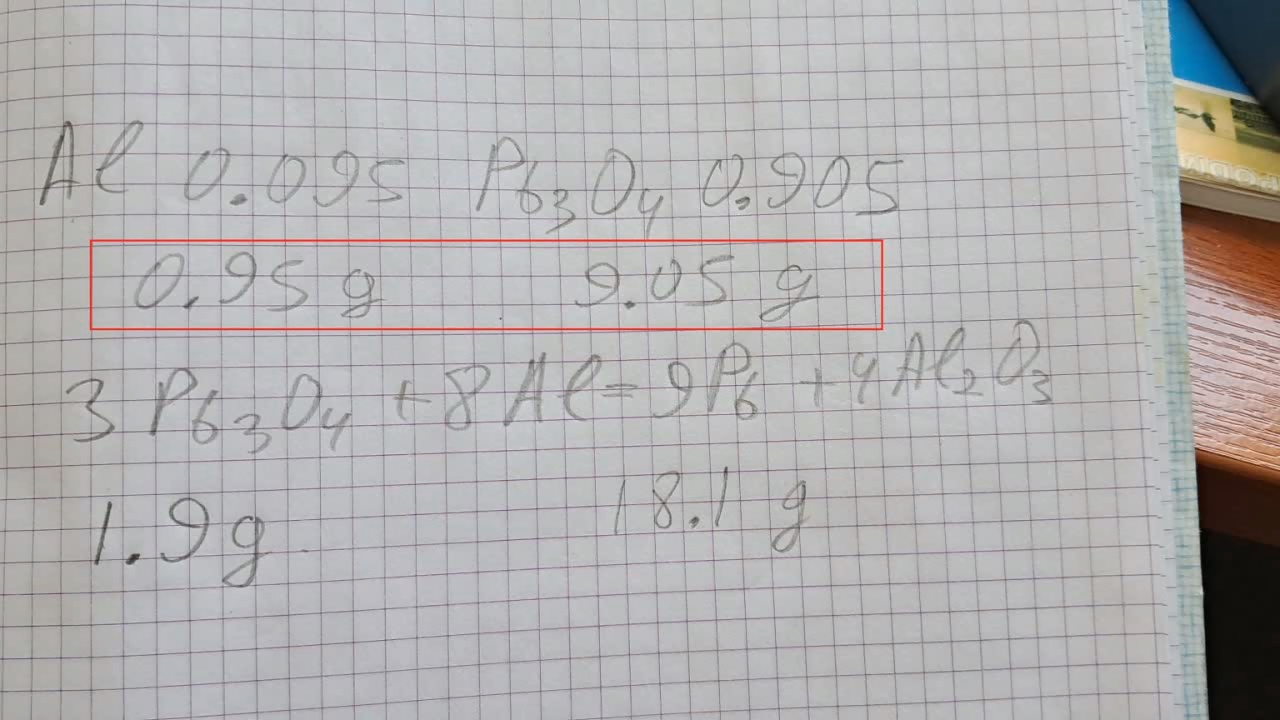 Al 0.095 Pb3O4 0.905
0.95 g 9.05 g
3 Pb3O4 + 8 Al = 9Pb + 4Al2O3
1.9g 18.1 g